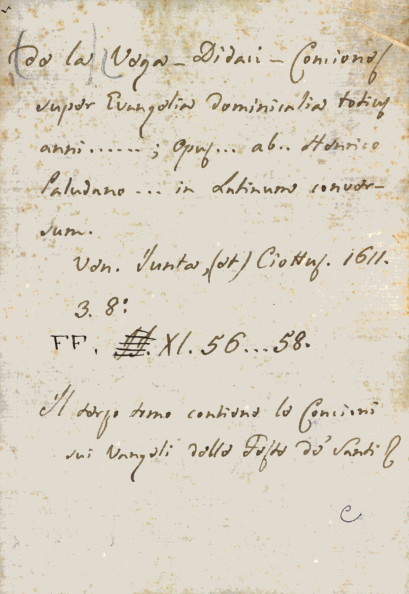 (de la Vega - Didaci - Conciones
super Evangelia dominicalia totius
anni......; opus... ab.. Henrico
Paludano... in Latinum conver-
sum.
Ven. Junta, (et) Ciottus. 1611.
3. 8:
FF. XI. 56...58.
Il terzo tomo contiene le Concioni
sui Vangeli delle Feste de' Santi
C